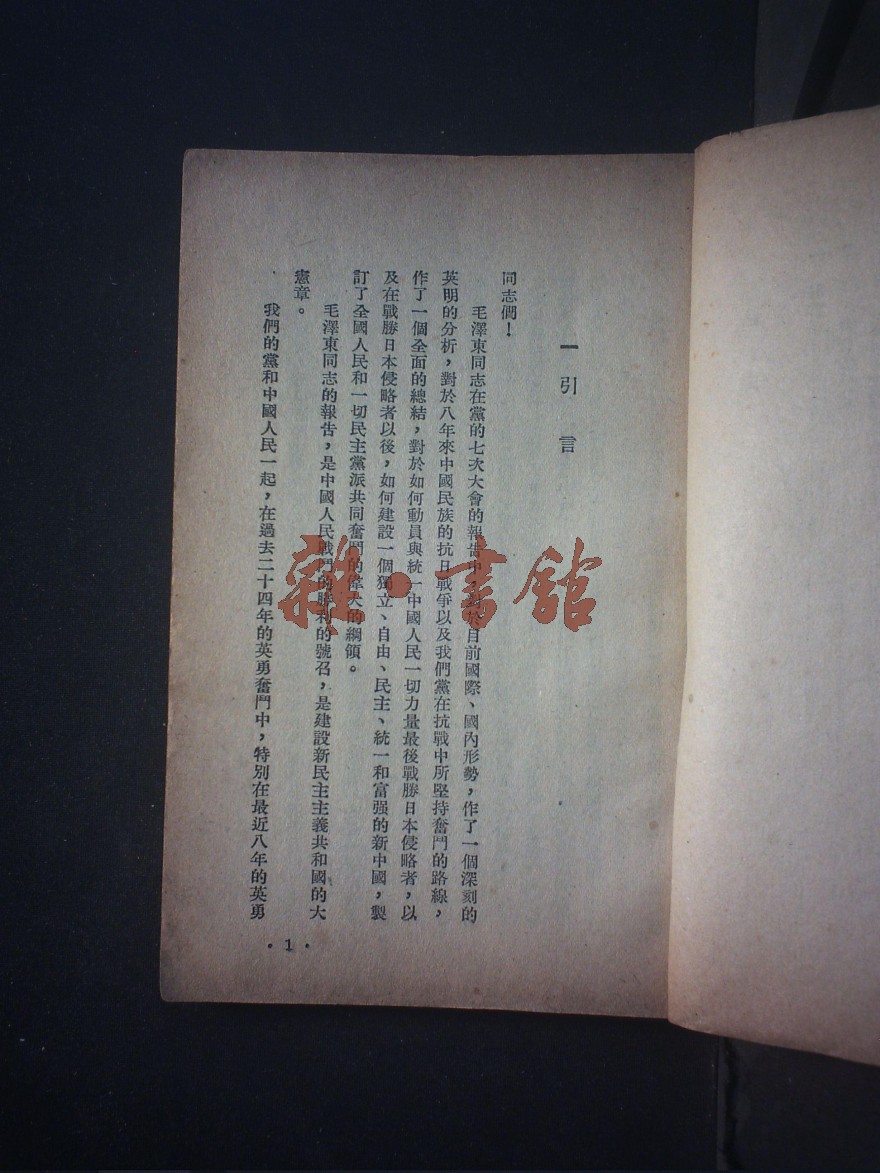 一 引 言
同志們！
毛澤東同志在黨的七次大會的報告中，對於目前國際、國內形勢，作了一個深刻的
英明的分析，對於八年來中國民族的抗日戰爭以及我們黨在抗戰中所堅持奮鬥的路線，
作了一個全面的總結，對於如何動員與統一中國人民一切力量最後戰勝日本侵略者，以
及在戰勝日本侵略者以後，如何建設一個獨立、自由、民主、統一和富强的新中國，製
訂了全國人民和一切民主黨派共同奮鬥的偉大的綱領。
毛澤東同志的報告，是中國人民戰鬥的勝利的號召，是建設新民主主義共和國的大
憲章。
我們的黨和中國人民一起，在過去二十四年的英勇奮鬥中，特別在最近八年的英勇
· 1 ·
雜·書館